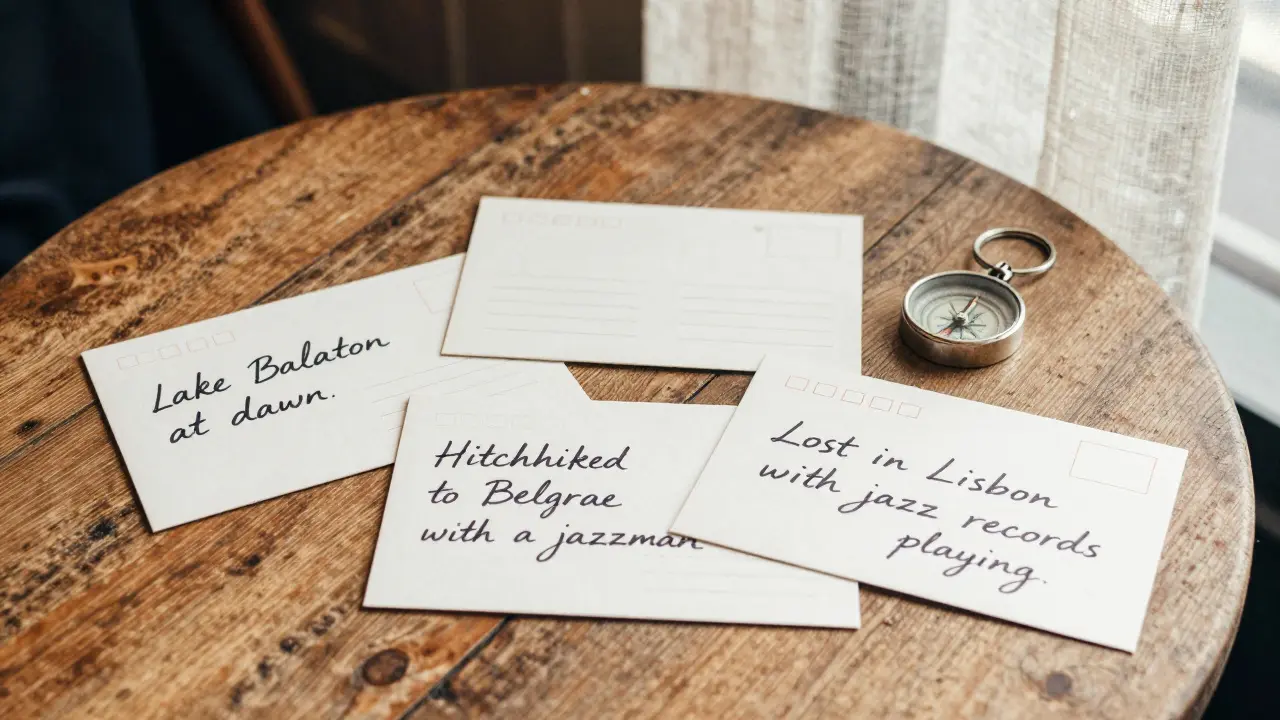 Lake Balaton
at dawn.
Hitchhiked
to Belgrae
with a jazzman
Lost in Lisbon
with jazz records
playing.